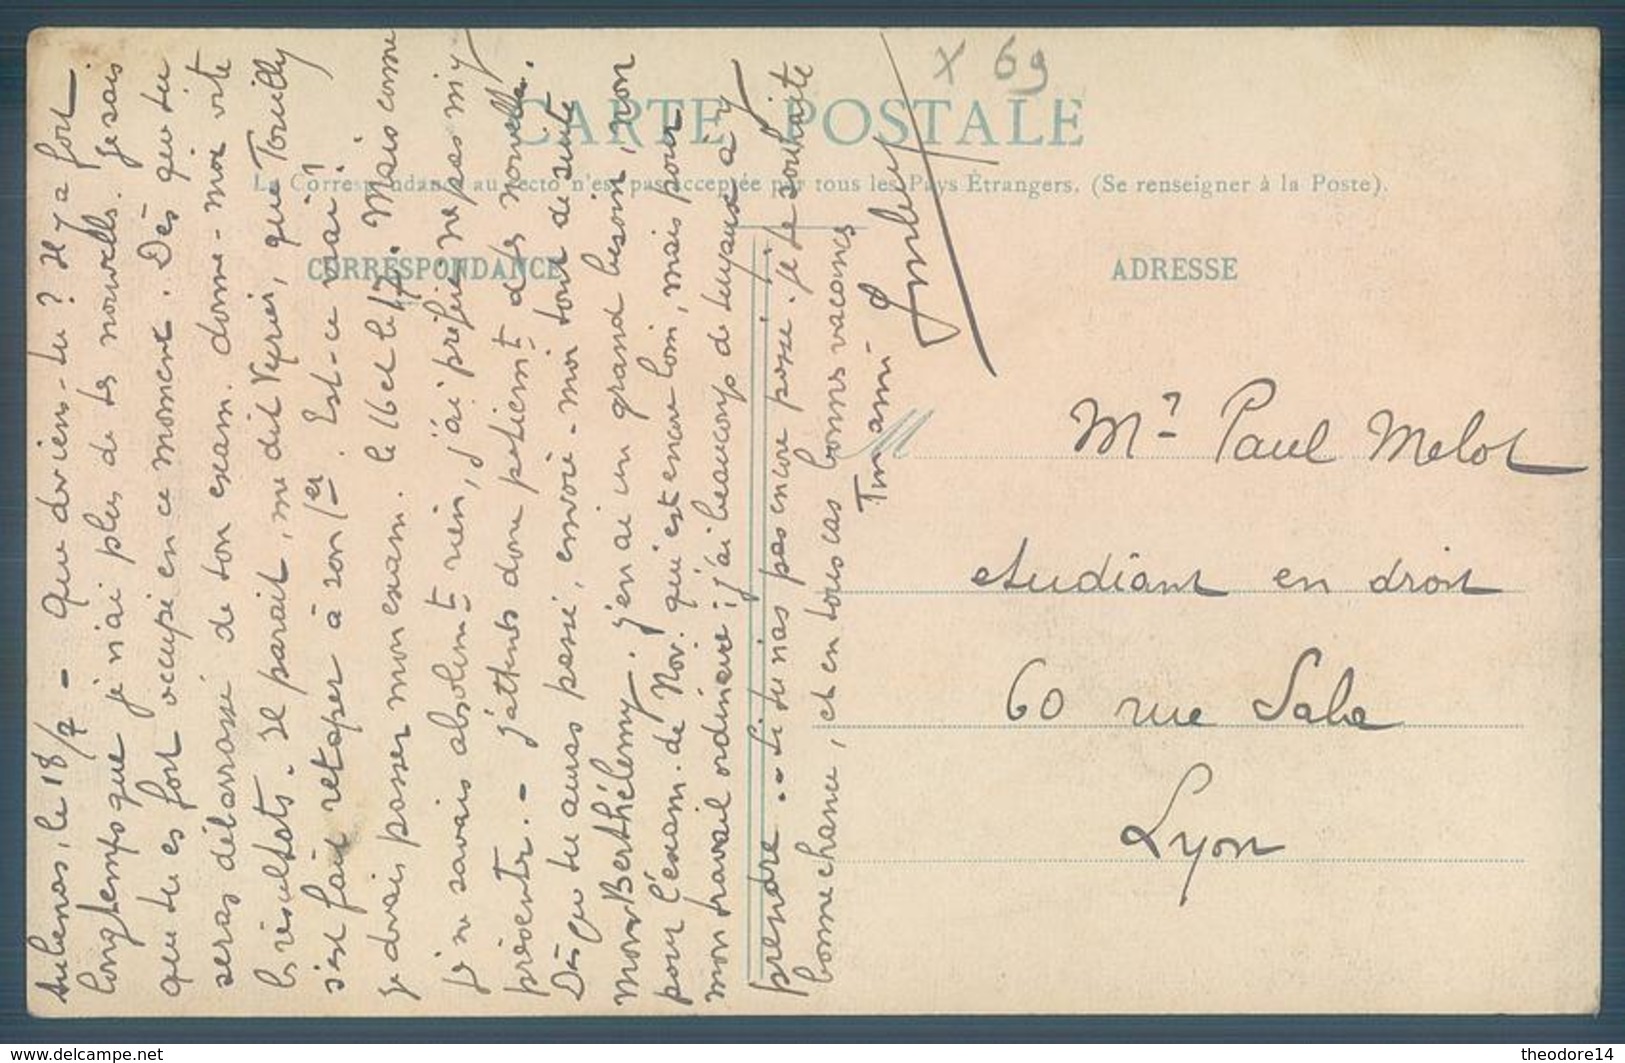 X 69
CARTE POSTALE
La Correspondance au recto n'est pas acceptée par tous les Pays Étrangers. (Se renseigner à la Poste).
CORRESPONDANCE
ADRESSE
Aubenas, le 18/7 - Que deviens-tu ? Il y a fort
longtemps que je n'ai plus de tes nouvelles. Je sais
que tu es fort occupé en ce moment. Dès que tu
seras débarrassé de ton exam. donne-moi vite
les résultats. Il parait, me dit Veyrier, que Touilly
s'est fait retaper à son 1er. Est-ce vrai ?
je devais passer mon exam. le 16 et le 17. Mais comme
je ne savais absolumt rien, j'ai préféré ne pas m'y
présenter. - J'attends donc patiemt des nouvelles.
Dès que tu auras passé, envoie-moi tout de suite
mon Berthélemy. J'en ai un grand besoin, non
pour l'exam. de Nov. qui est encore loin, mais pour
mon travail ordinaire ; j'ai beaucoup de tuyaux à y
prendre. - Si tu n'as pas encore passé, je te souhaite
bonne chance, et en tous cas bonnes vacances
Ton ami
M
Mr Paul Melot
etudiant en droit
60 rue Sala
Lyon
www.delcampe.net
theodore14